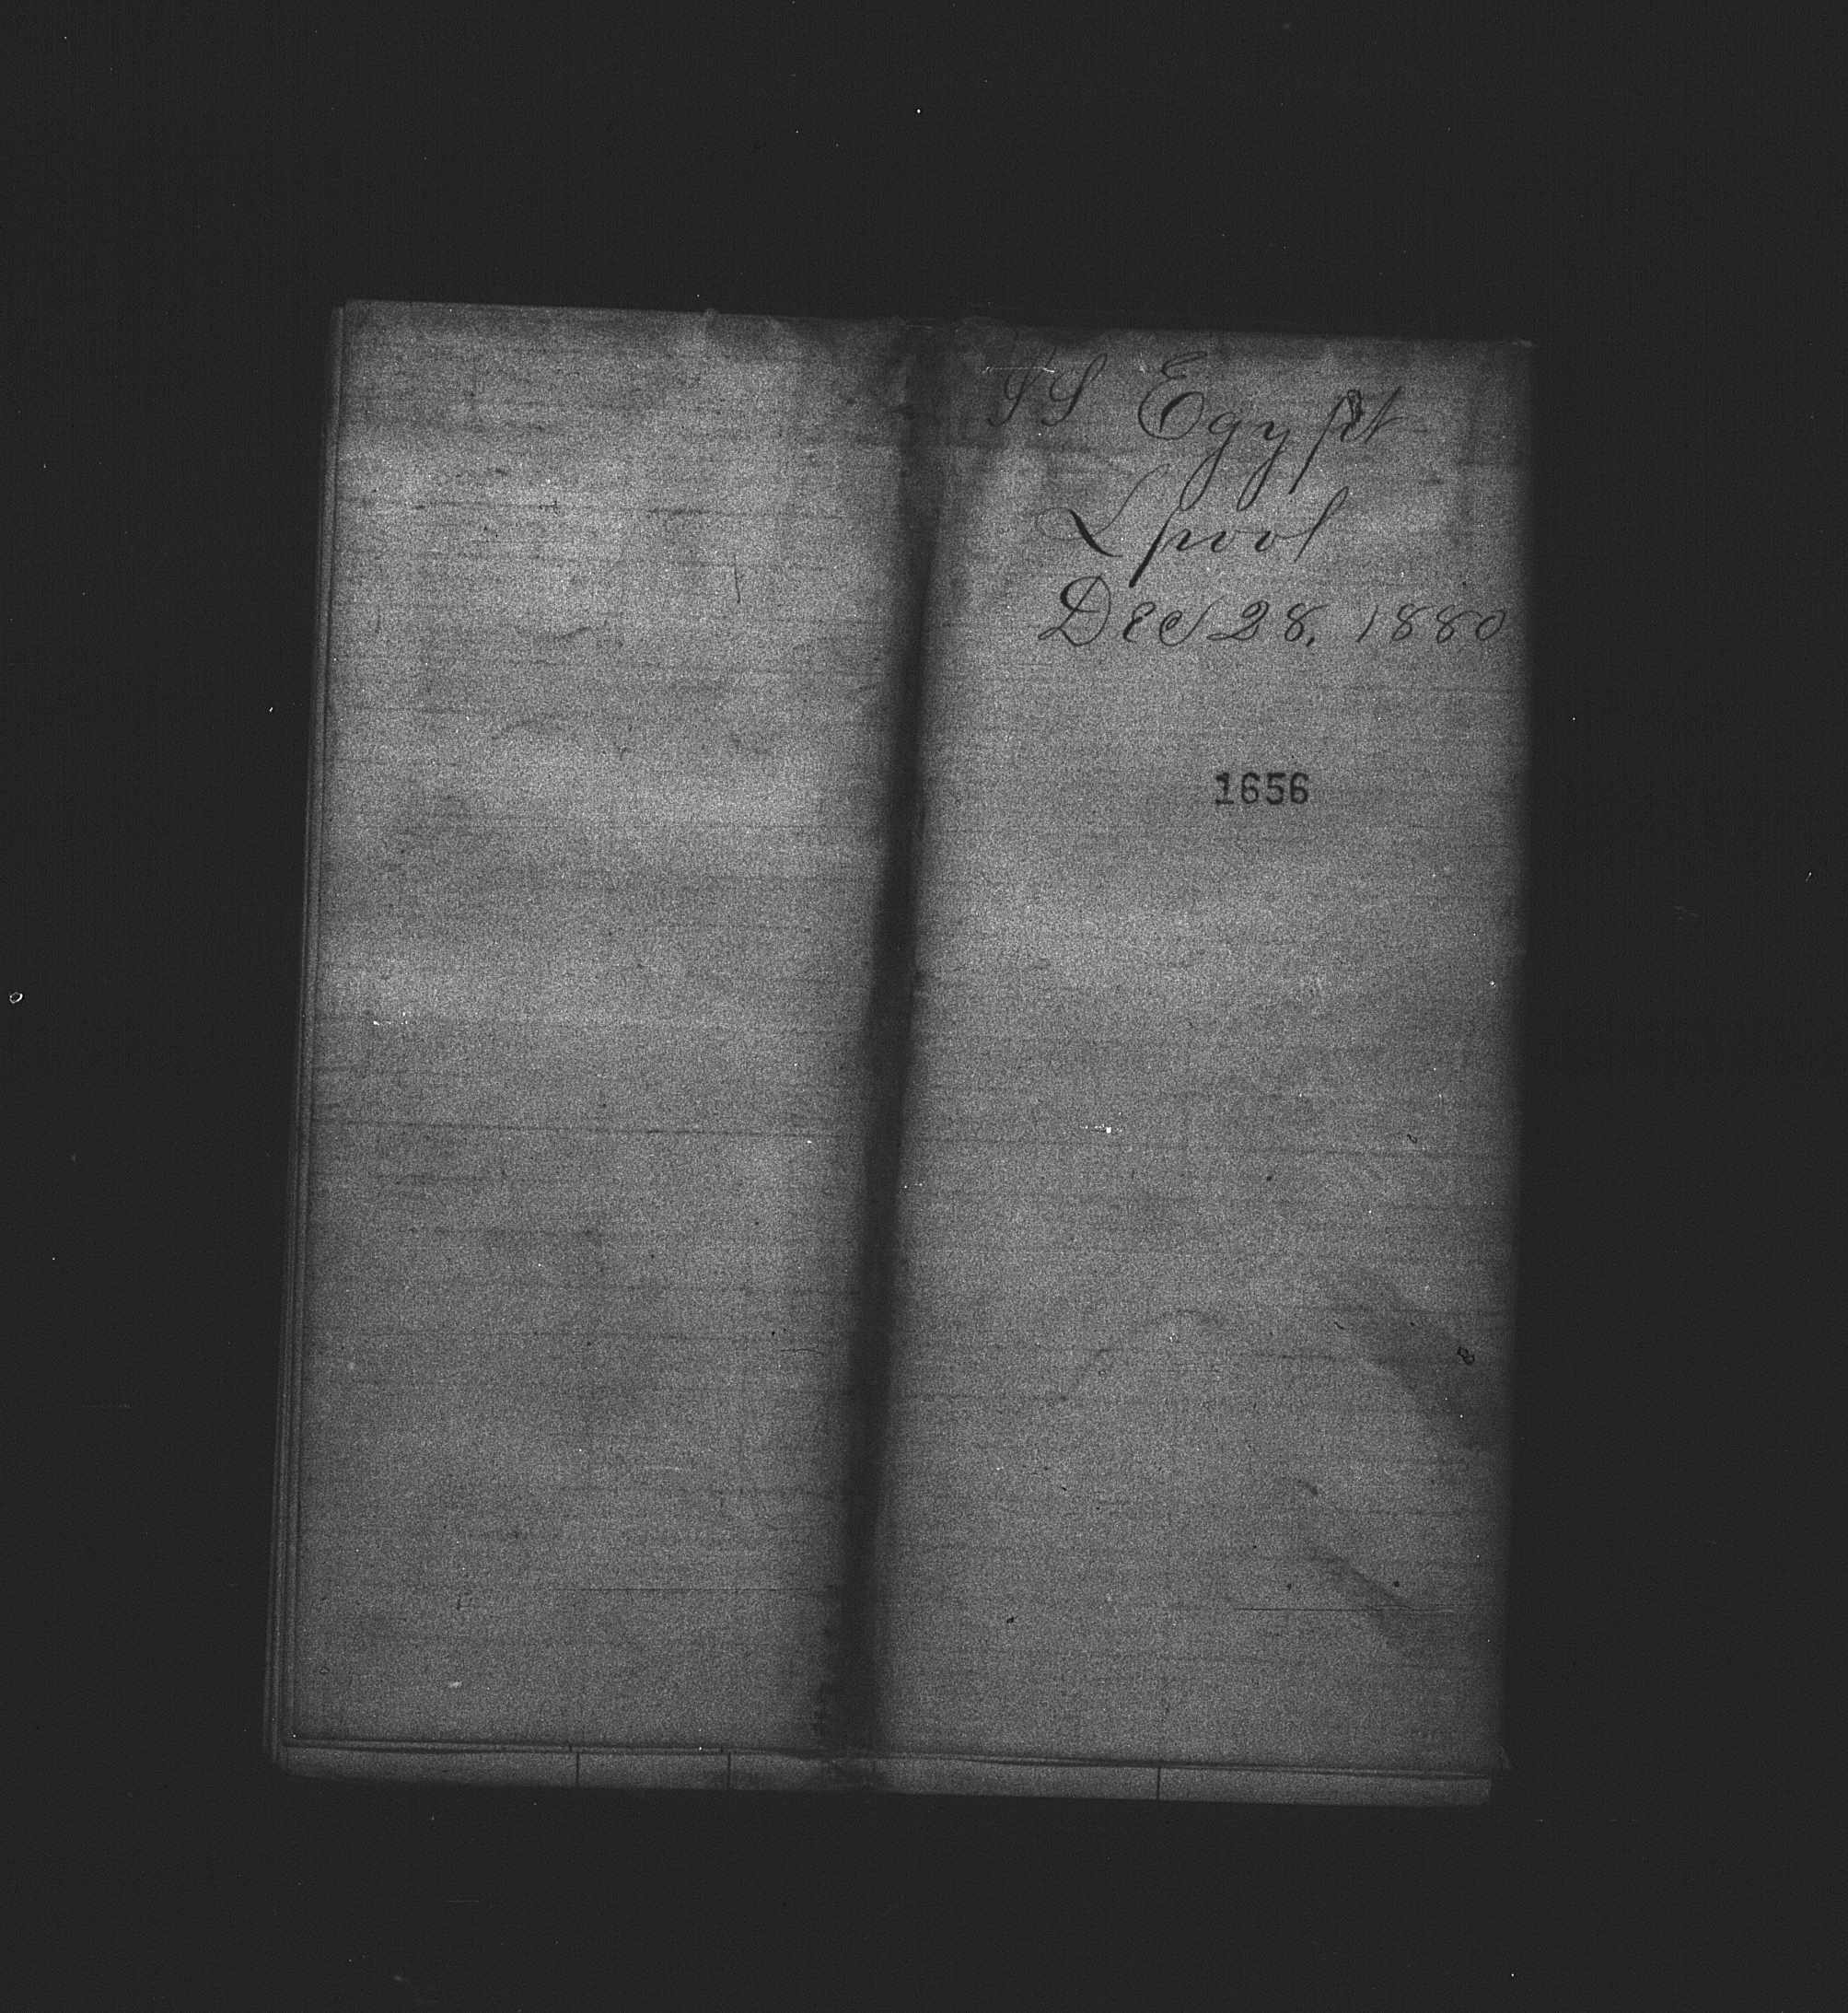 SS Egypt
Lpool
Dec 28, 1880
1656